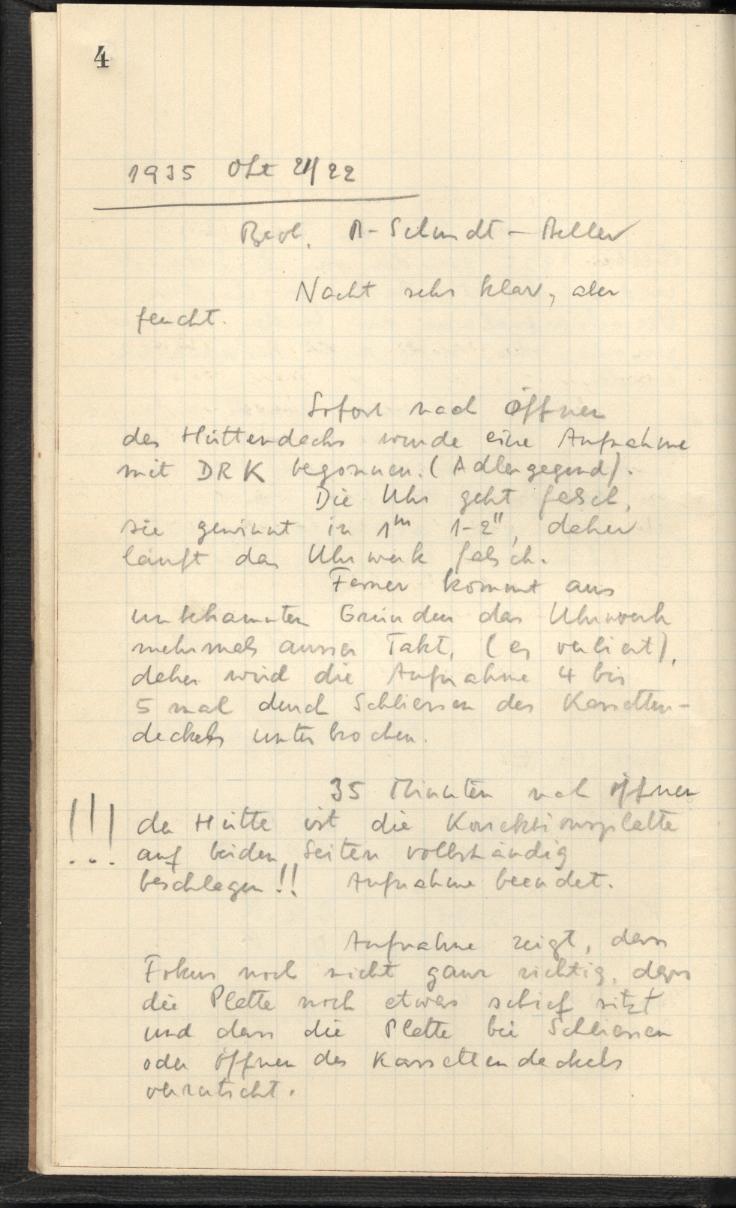 4
1935 Okt 21/22
Beob. A-Schmidt-
Nacht sehr klar, aber
feucht.
Sofort nach Öffnen
des Hüttendachs wurde eine Aufnahme
mit DRK begonnen. (Adlergegend).
Die Uhr geht falsch,
sie gewinnt in 1ᵐ 1-2", daher
läuft das Uhrwerk falsch.
Ferner kommt aus
unbekannten Gründen das Uhrwerk
mehrmals ausser Takt, (es verliert),
daher wird die Aufnahme 4 bis
5 mal durch Schliessen des Kassetten-
deckels unterbrochen.
35 Minuten nach Öffnen
!!! der Hütte ist die Korrektionsplatte
auf beiden Seiten vollständig
beschlagen!! Aufnahme beendet.
Aufnahme zeigt, dass
Fokus noch nicht ganz richtig, dass
die Platte noch etwas schief sitzt
und dass die Platte bei Schliessen
oder Öffnen des Kassettendeckels
verrutscht.